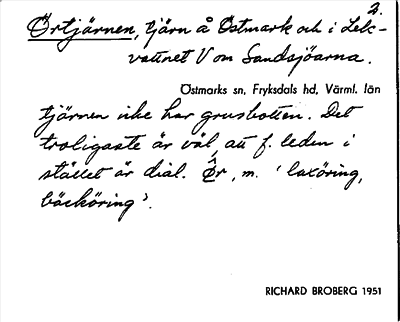 2.
Örtjärnen, tjärn å Östmark och i Lek-
vattnet V om Sandsjöarna.
Östmarks sn, Fryksdals hd, Värml. län
tjärnen icke har grusbotten. Det
troligaste är väl, att f. leden i
stället är dial. Ör, m. 'laxöring,
bäcköring'.
RICHARD BROBERG 1951